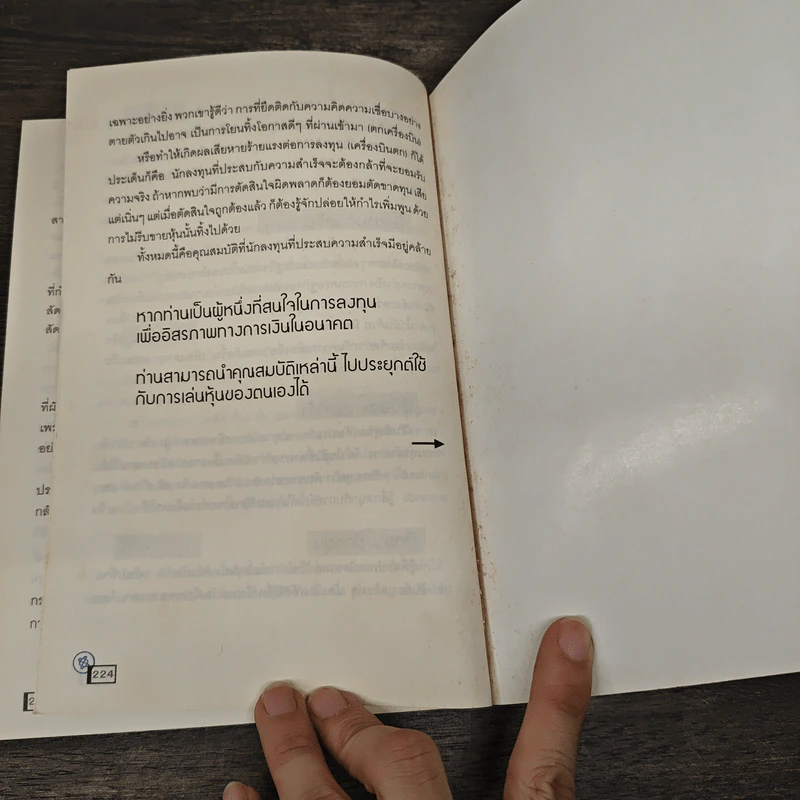 เฉพาะอย่างยิ่ง พวกเขารู้ดีว่า การที่ยึดติดกับความคิดความเชื่อบางอย่าง
ตายตัวเกินไปอาจ เป็นการโยนทิ้งโอกาสดีๆ ที่ผ่านเข้ามา (ตกเครื่องบิน)
หรือทำให้เกิดผลเสียหายร้ายแรงต่อการลงทุน (เครื่องบินตก) ก็ได้
ประเด็นก็คือ นักลงทุนที่ประสบกับความสำเร็จจะต้องกล้าที่จะยอมรับ
ความจริง ถ้าหากพบว่ามีการตัดสินใจผิดพลาดก็ต้องยอมตัดขาดทุน เสีย
แต่เนิ่นๆ แต่เมื่อตัดสินใจถูกต้องแล้ว ก็ต้องรู้จักปล่อยให้กำไรเพิ่มพูน ด้วย
การไม่รีบขายหุ้นนั้นทิ้งไปด้วย
ทั้งหมดนี้คือคุณสมบัติที่นักลงทุนที่ประสบความสำเร็จมีอยู่คล้าย
กัน
หากท่านเป็นผู้หนึ่งที่สนใจในการลงทุน
เพื่ออิสรภาพทางการเงินในอนาคต
ท่านสามารถนำคุณสมบัติเหล่านี้ ไปประยุกต์ใช้
กับการเล่นหุ้นของตนเองได้
224